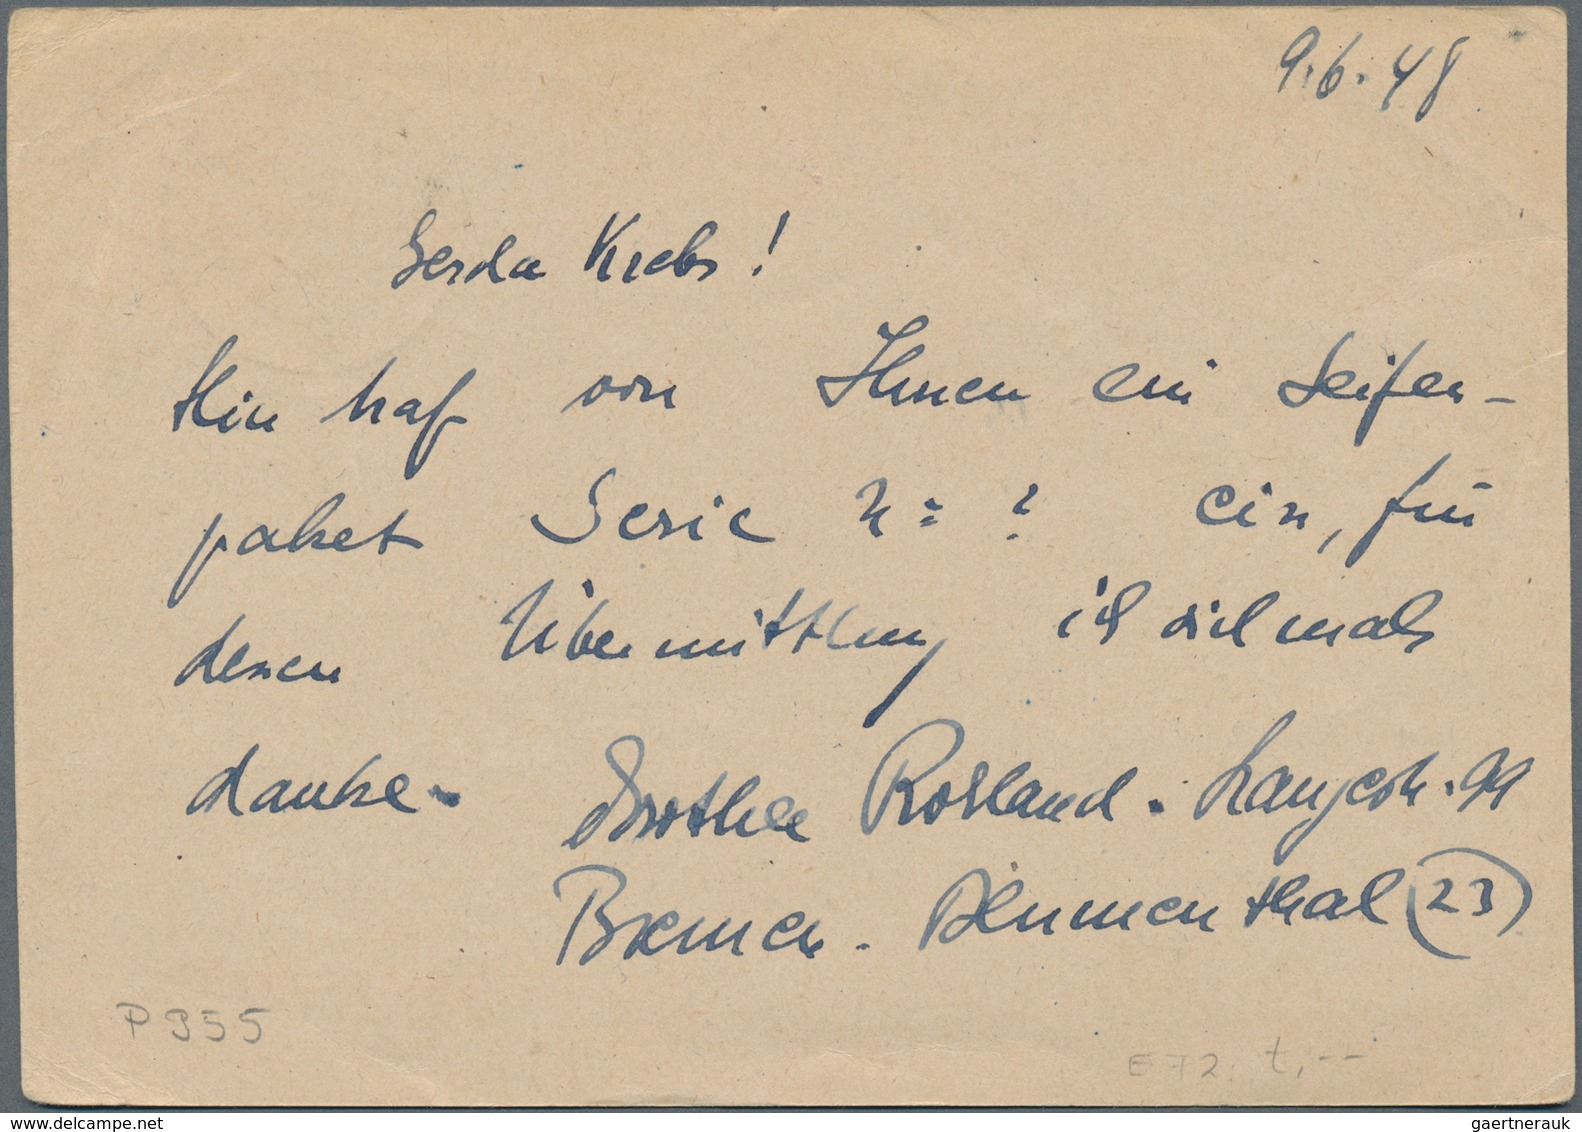 9.6.48
Gerda Krebs!
Hier traf von Ihnen ein Seifen-
paket Serie ? ein, für
deren Übermittlung ich vielmals
danke. Dorothea Rosland. Langestr. 99
Bremen. Blumenthal (23)
P 355
E 72. t,--
www.delcampe.net
gaertnerauk